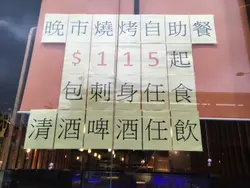 晚市燒烤自助餐
$115起
包刺身任食
清酒啤酒任飲